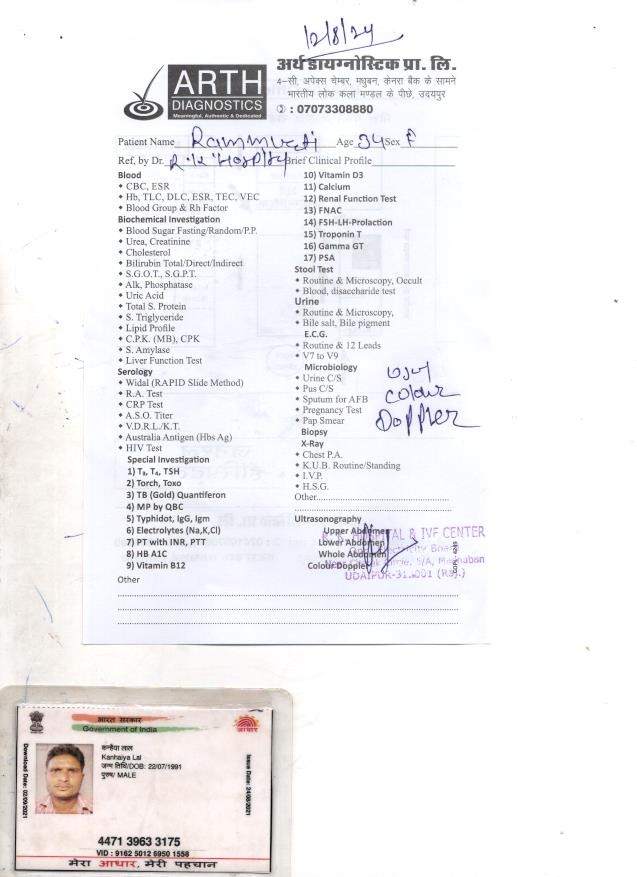 12/8/24
अर्थ डायग्नोस्टिक प्रा. लि.
4-सी, अपेक्स चेम्बर, मधुबन, केनरा बैंक के सामने
भारतीय लोक कला मण्डल के पीछे, उदयपुर
: 07073308880
ARTH
DIAGNOSTICS
Meaningful, Authentic & Dedicated
Patient Name Rammurti Age 34 Sex F
Ref, by Dr. R.K Hospital Brief Clinical Profile
Blood
CBC, ESR
Hb, TLC, DLC, ESR, TEC, VEC
Blood Group & Rh Factor
Biochemical Investigation
Blood Sugar Fasting/Random/P.P.
Urea, Creatinine
Cholesterol
Bilirubin Total/Direct/Indirect
S.G.O.T., S.G.P.T.
Alk, Phosphatase
Uric Acid
Total S. Protein
S. Triglyceride
Lipid Profile
C.P.K. (MB), CPK
S. Amylase
Liver Function Test
Serology
Widal (RAPID Slide Method)
R.A. Test
CRP Test
A.S.O. Titer
V.D.R.L./K.T.
Australia Antigen (Hbs Ag)
HIV Test
Special Investigation
1) T₃, T₄, TSH
2) Torch, Toxo
3) TB (Gold) Quantiferon
4) MP by QBC
5) Typhidot, IgG, Igm
6) Electrolytes (Na,K,Cl)
7) PT with INR, PTT
8) HB A1C
9) Vitamin B12
Other
10) Vitamin D3
11) Calcium
12) Renal Function Test
13) FNAC
14) FSH-LH-Prolaction
15) Troponin T
16) Gamma GT
17) PSA
Stool Test
Routine & Microscopy, Occult
Blood, disaccharide test
Urine
Routine & Microscopy,
Bile salt, Bile pigment
E.C.G.
Routine & 12 Leads
V7 to V9
Microbiology
Urine C/S
Pus C/S
Sputum for AFB
Pregnancy Test
Pap Smear
Biopsy
X-Ray
Chest P.A.
K.U.B. Routine/Standing
I.V.P.
H.S.G.
Other
Ultrasonography
Upper Abdomen
Lower Abdomen
Whole Abdomen
Colour Doppler
colour
Doppler
HOSPITAL & IVF CENTER
Electricity Board
Circle, 5/A, Madhuban
UDAIPUR-313001 (Raj.)
भारत सरकार
Government of India
आधार
Download Date: 02/09/2021
कन्हैया लाल
Kanhaiya Lal
जन्म तिथि/DOB: 22/07/1991
पुरुष/ MALE
Issue Date: 24/08/2021
4471 3963 3175
VID : 9162 5012 6950 1558
मेरा आधार, मेरी पहचान